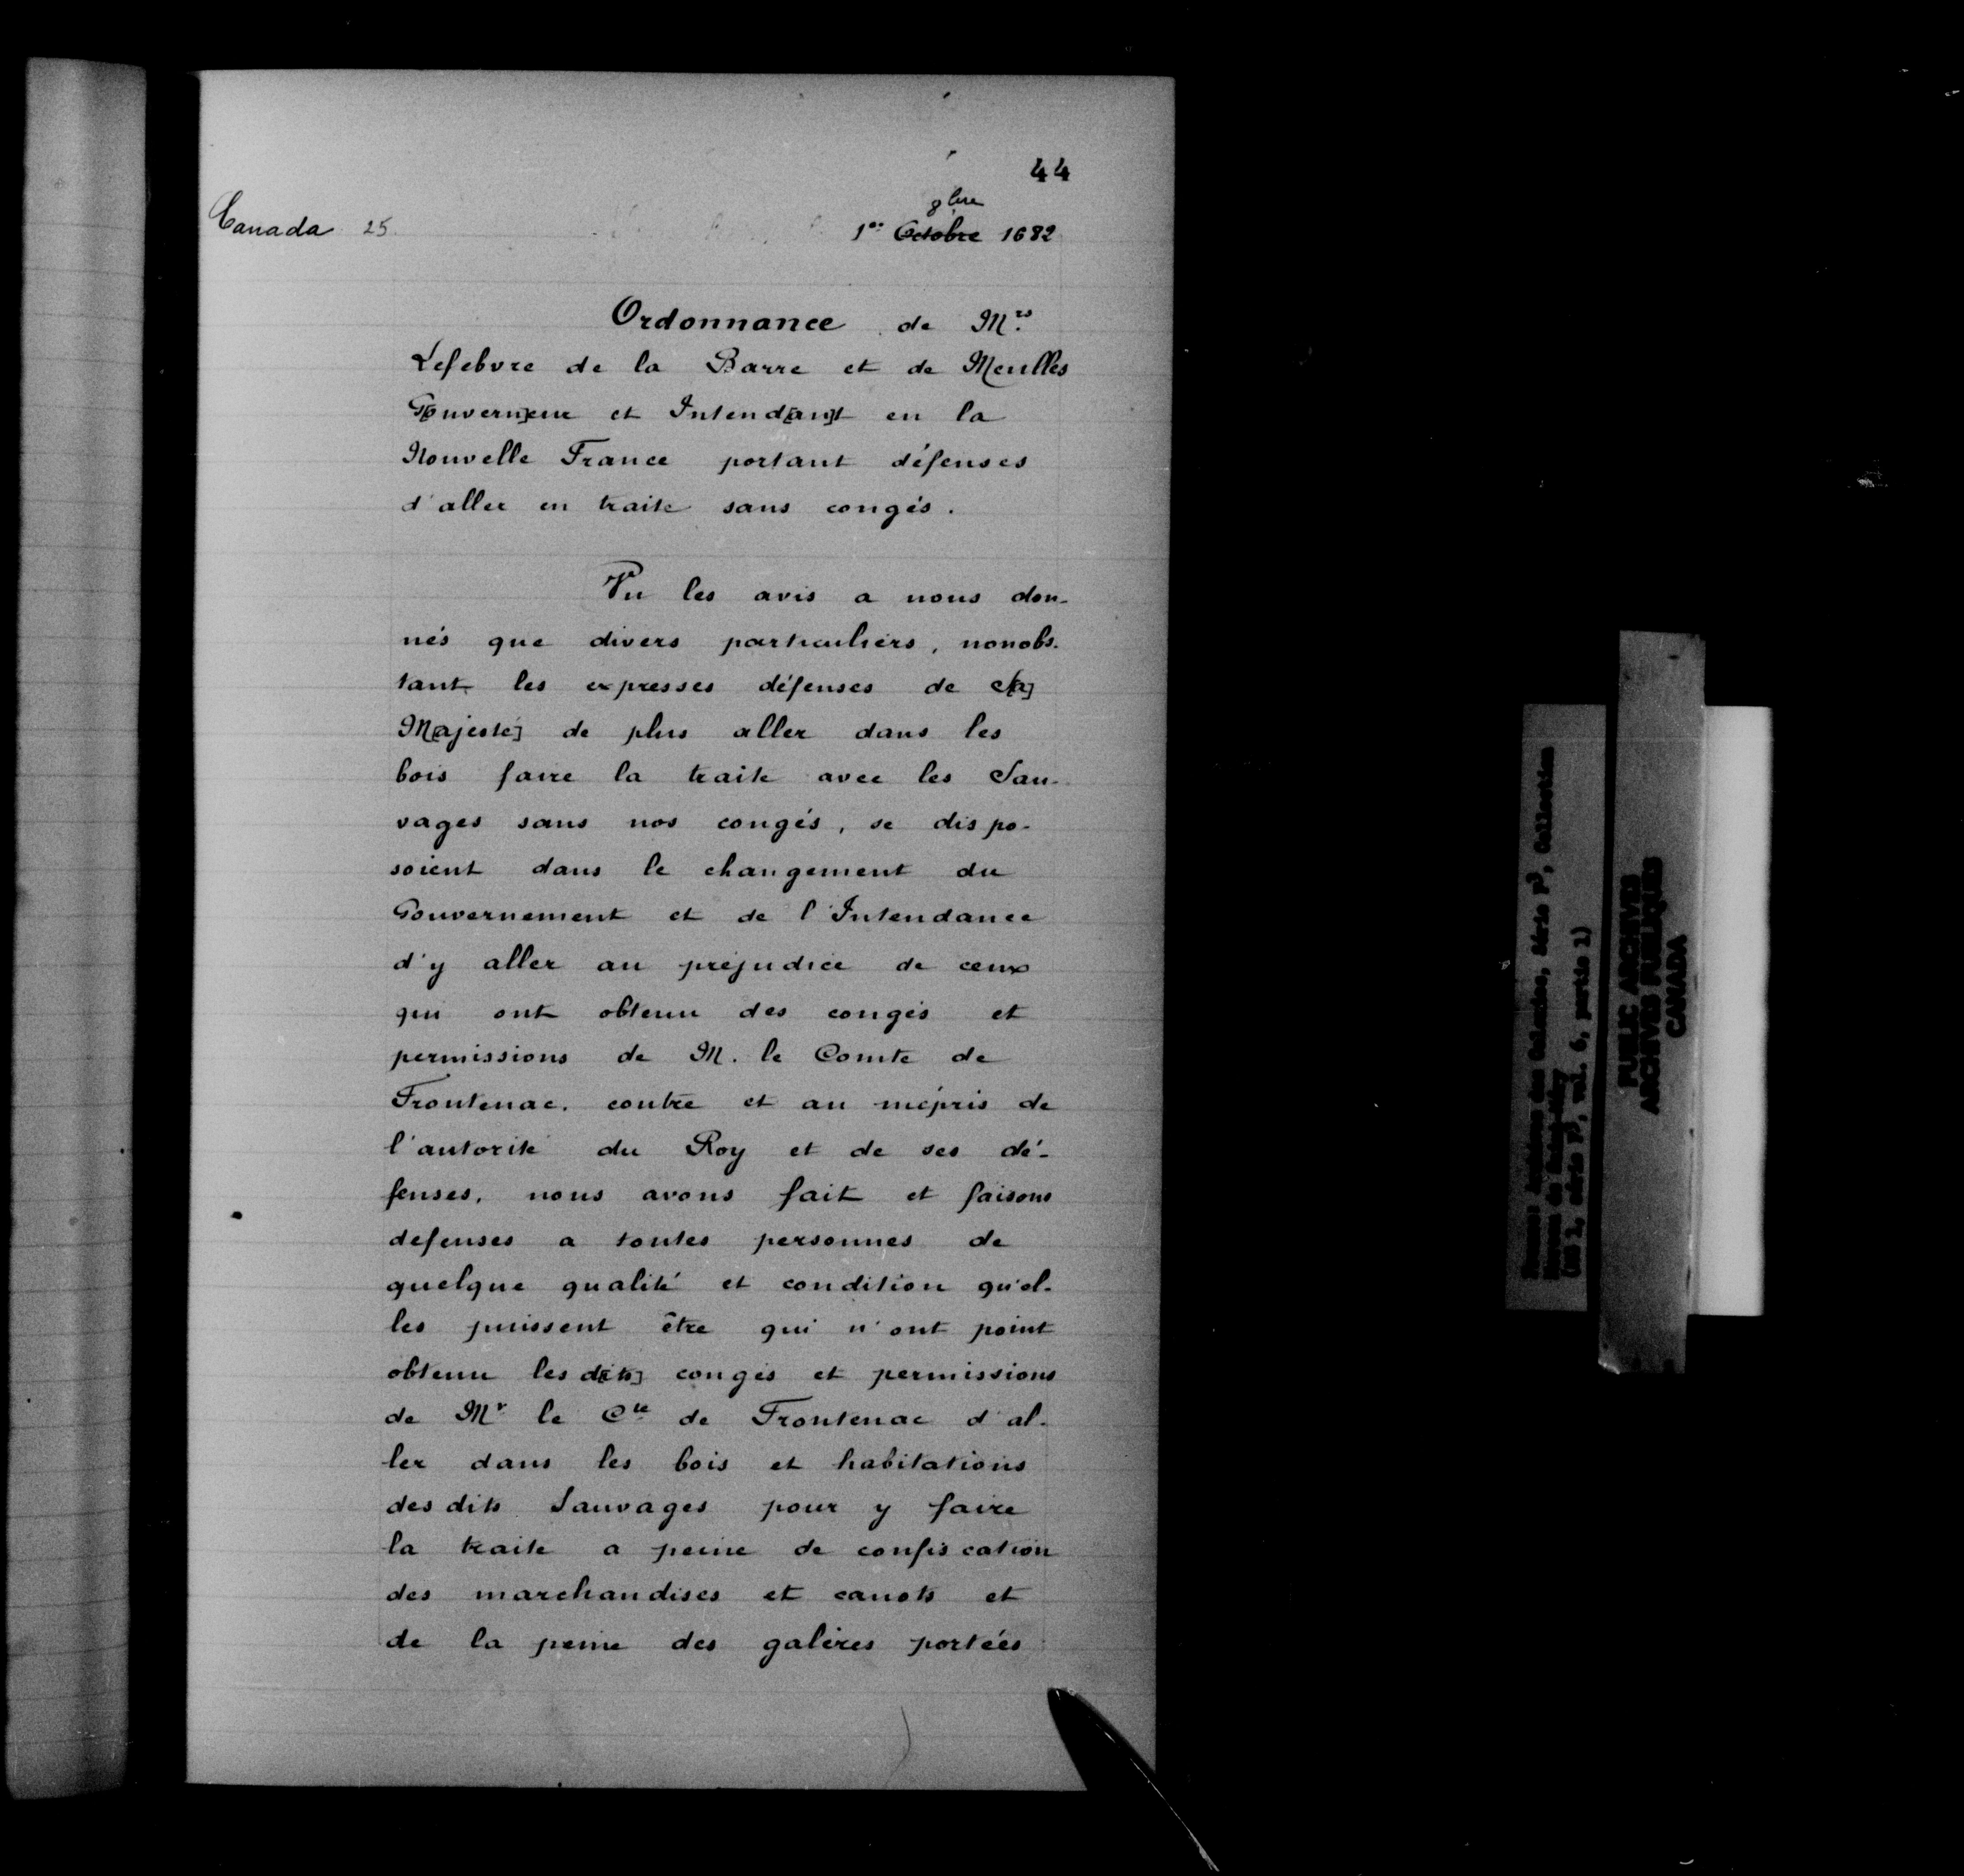 44
Canada 25.
8bre
1er Octobre 1682
Ordonnance de Mrs
Lefebvre de la Barre et de Meulles
G[ouvern]eur et Intend[an]t en la
Nouvelle France portant défenses
d'aller en traite sans congés.
Vu les avis a nous don-
nés que divers particuliers, nonobs-
tant les expresses défenses de S[a]
M[ajesté] de plus aller dans les
bois faire la traite avec les Sau-
vages sans nos congés, se dispo-
soient dans le changement du
Gouvernement et de l'Intendance
d'y aller au préjudice de ceux
qui ont obtenu des congés et
permissions de M. le Comte de
Frontenac, contre et au mépris de
l'autorité du Roy et de ses dé-
fenses, nous avons fait et faisons
defenses a toutes personnes de
quelque qualité et condition qu'el-
les puissent être qui n'ont point
obtenu les d[its] congés et permissions
de Mr le Cte de Frontenac d'al-
ler dans les bois et habitations
des dits Sauvages pour y faire
la traite a peine de confiscation
des marchandises et canots et
de la peine des galères portées
des Colonies, série F3, Collection
(MG 1, série F3, vol. 6, partie 1)
PUBLIC ARCHIVES
ARCHIVES PUBLIQUES
CANADA